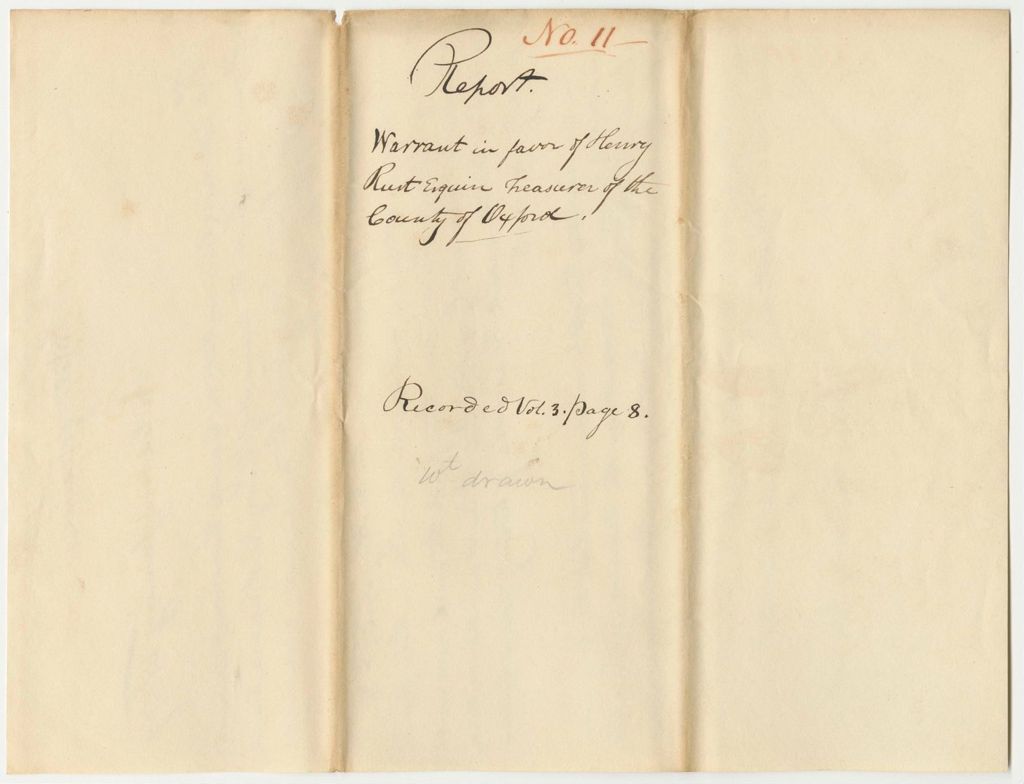 No. 11
Report.
Warrant in favor of Henry
Rust Esquire Treasurer of the
County of Oxford.
Recorded Vol. 3. page 8.
Wt drawn